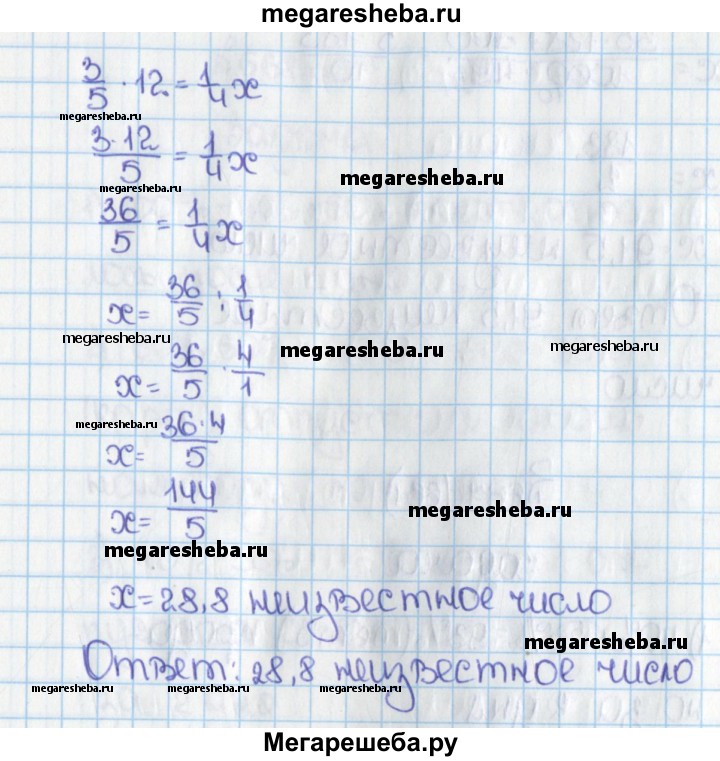 megaresheba.ru
3/5 · 12 = 1/4 x
megaresheba.ru
3·12/5 = 1/4 x
megaresheba.ru
megaresheba.ru
36/5 = 1/4 x
x = 36/5 : 1/4
megaresheba.ru
megaresheba.ru
x = 36/5 · 4/1
megaresheba.ru
x = 36·4/5
x = 144/5
megaresheba.ru
megaresheba.ru
x = 28,8 неизвестное число
megaresheba.ru
Ответ: 28,8 неизвестное число
megaresheba.ru megaresheba.ru megaresheba.ru
Мегарешеба.ру